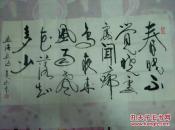 春眠不
觉晓处
处闻啼
鸟夜来
風雨声
花落知
多少